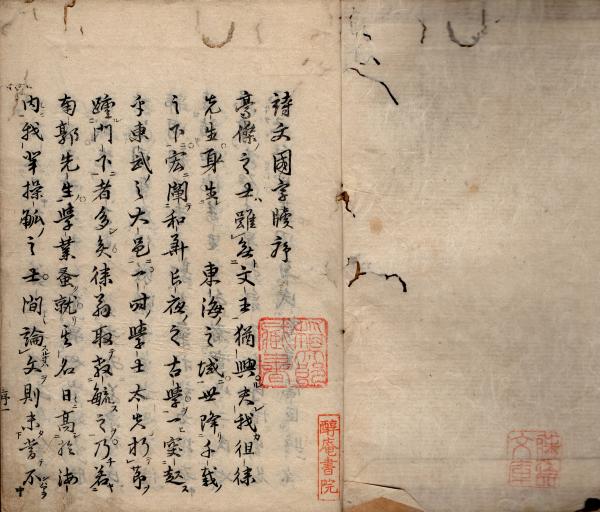 詩文國字牘序
豪傑之士雖無文王猶興矣我徂徠
先生身生東海之域世降千載
之下宏闡和華長夜之古學一突起
乎東武之大邑一時學士太夫折節
踵門下者多矣徠翁取教毓之乃若
南郭先生學業蚤就其名日高於海
内我輩操觚之士間論文則未嘗不
序一
醇庵書院